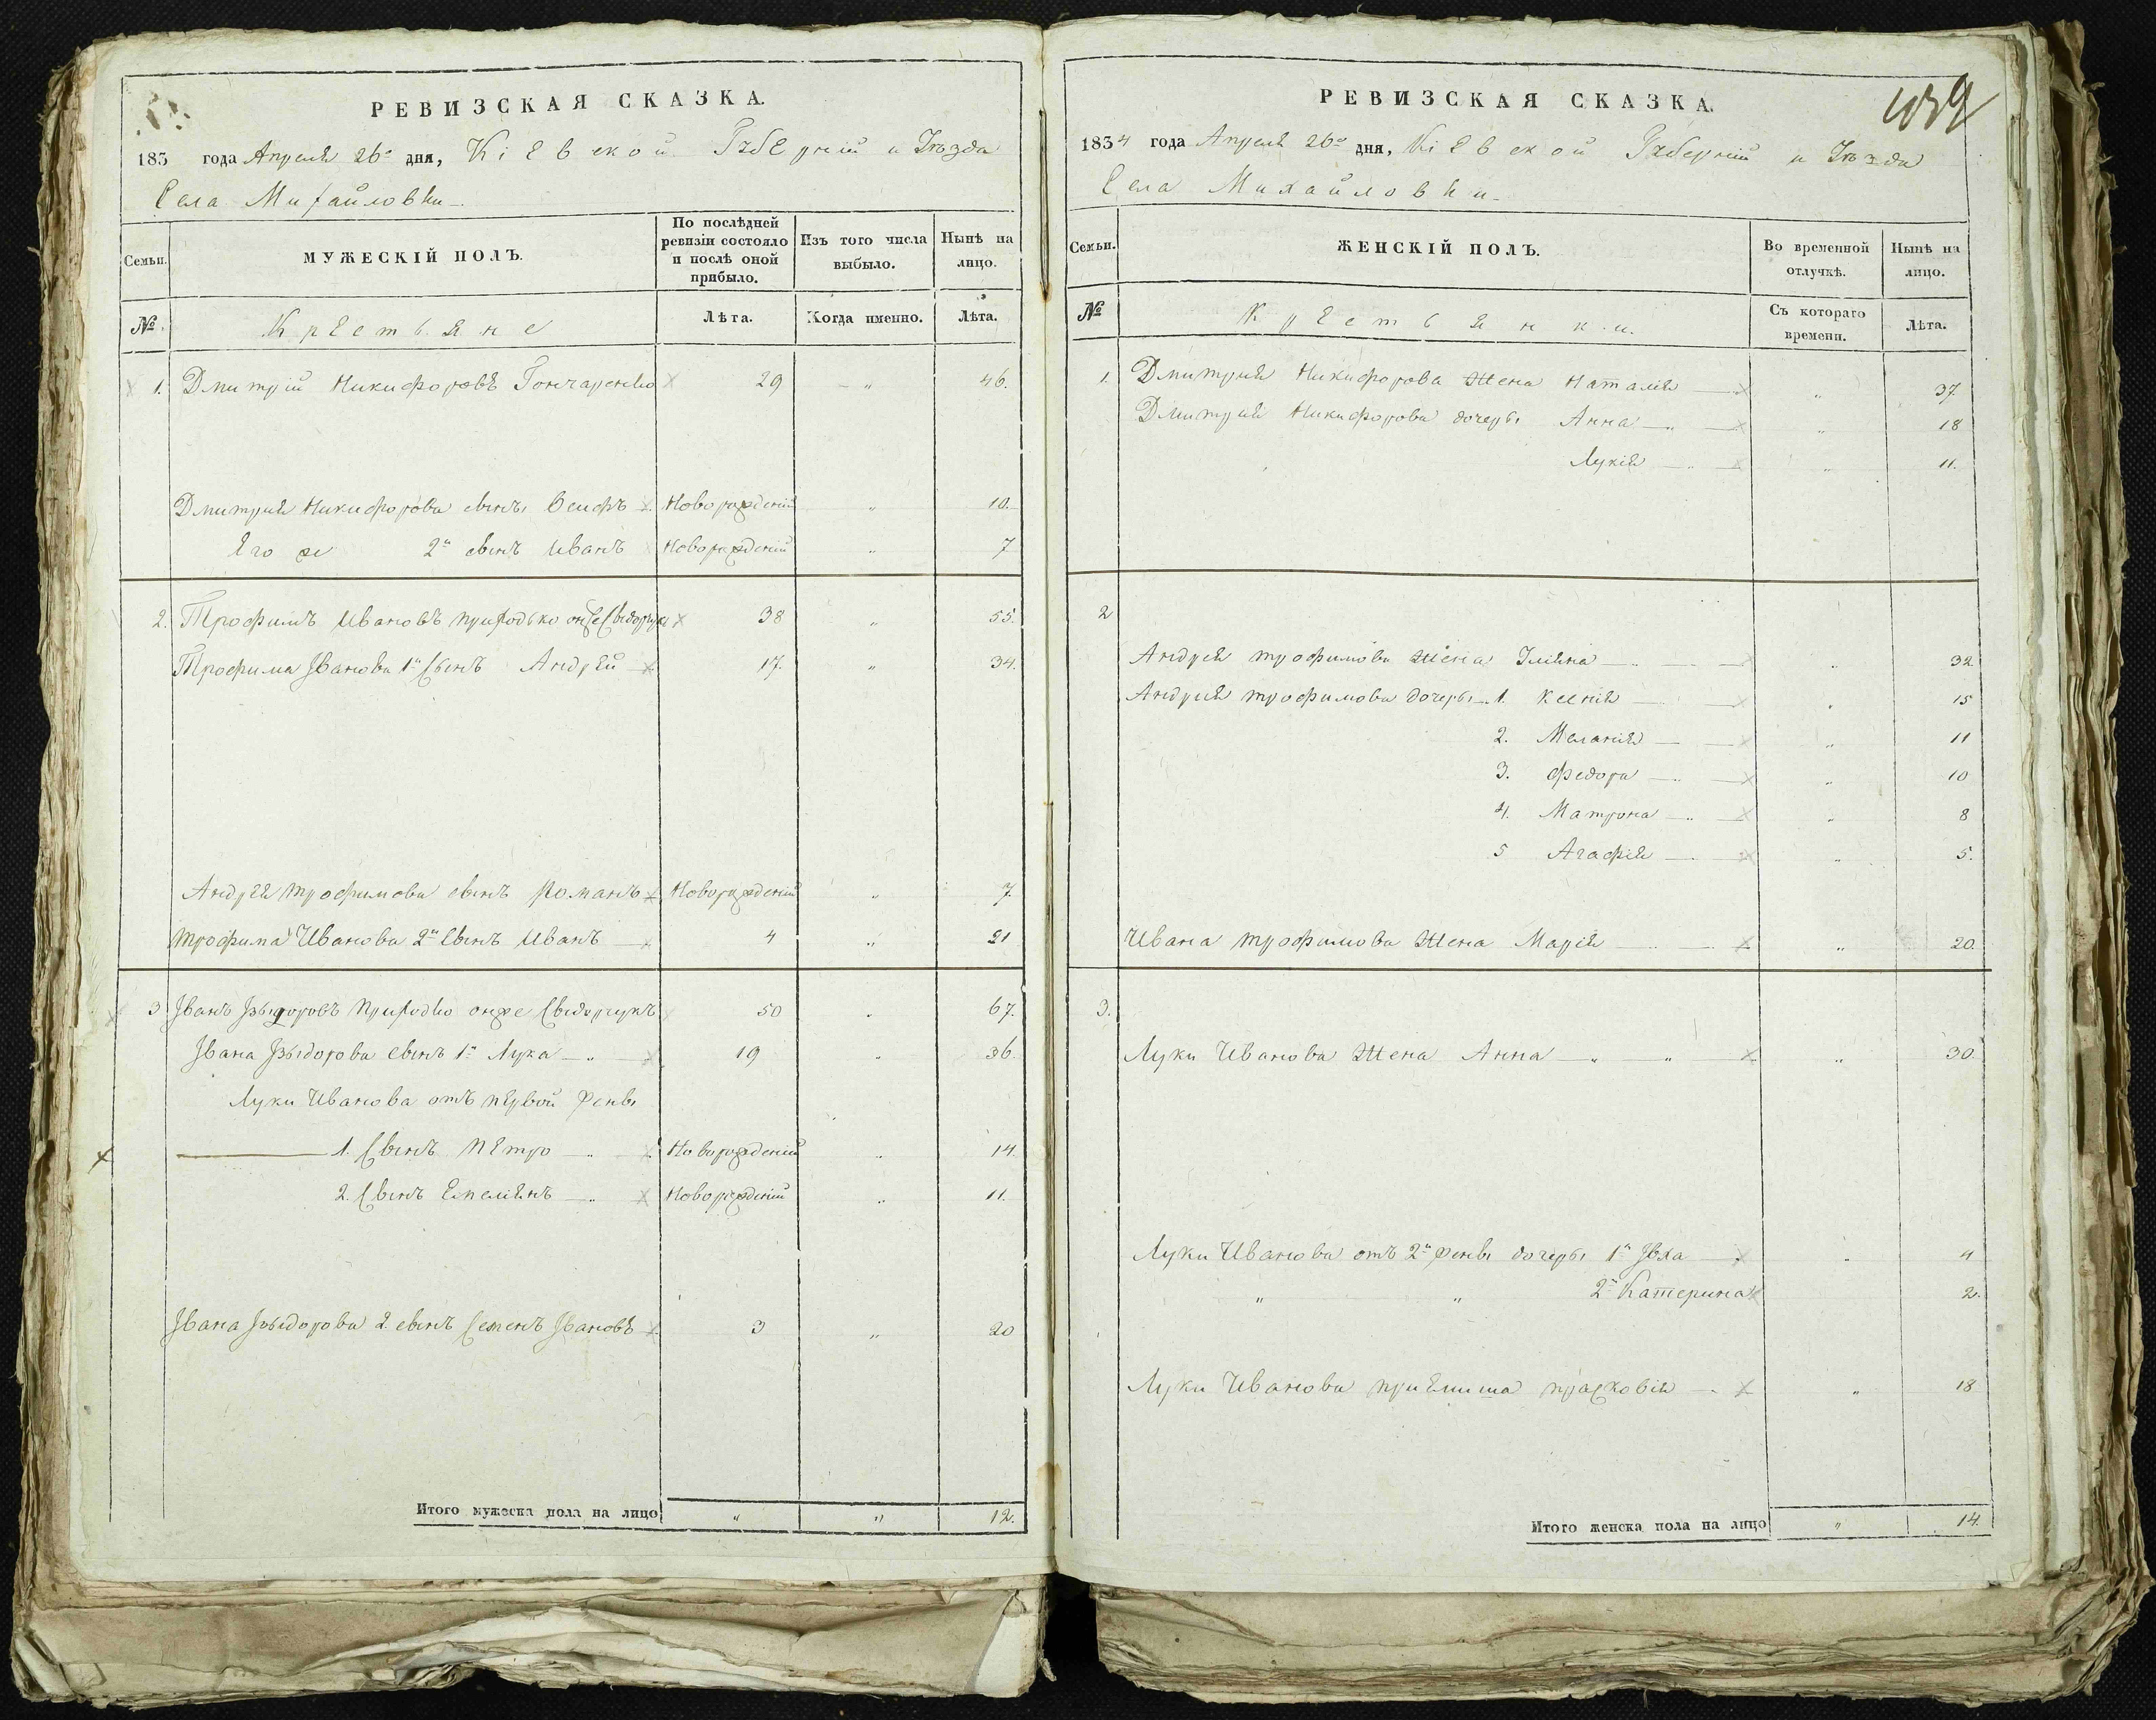 РЕВИЗСКАЯ СКАЗКА.
183 года Апреля 26го дня, Кіевской Губерніи и Уѣзда
Села Михайловки
Семьи.
МУЖЕСКІЙ ПОЛЪ.
По послѣдней ревизіи состояло и послѣ оной прибыло.
Изъ того числа выбыло.
Нынѣ на лицо.
№
Крестьяне
Лѣта.
Когда именно.
Лѣта.
1. Дмитрій Никифоровъ Гончаренко 29 " 46.
Дмитрия Никифорова сынъ Осифъ Новорожденій " 10.
Его же 2й сынъ Иванъ Новорожденій " 7
2. Трофимъ Ивановъ Приходько онже 38 " 55.
Трофима Іванова 1й Сынъ Андрей 17. " 34.
Андрея трофимова сынъ Романъ Новорожденій " 7.
трофима Иванова 2й Сынъ Иванъ 4 " 21
3 Іванъ Приходко онже 50 " 67.
Івана Ізыдорова сынъ 1й Лука " 19 " 36.
Луки Иванова отъ первой жены
1. Сынъ Петро Новорожденій " 14.
2. Сынъ Емелiянъ Новорожденій " 11.
Івана Ізыдорова 2. сынъ Семенъ Івановъ 3 " 20
Итого мужеска пола на лицо " " 12.
РЕВИЗСКАЯ СКАЗКА.
1834 года Апреля 26го дня, Кіевской Губерніи и Уѣзда
Села Михайловки
Семьи.
ЖЕНСКІЙ ПОЛЪ.
Во временной отлучкѣ.
Нынѣ на лицо.
№
Крестьянки.
Съ котораго времени.
Лѣта.
1. Дмитрия Никифорова жена Наталия " 37.
Дмитрия Никифорова дочеры Анна " 18
Лукія " 11.
2
Андрея трофимова жена " 32
Андрия трофимова дочеры 1. Ксенія " 15
2. Меланія " 11
3. федора " 10
4. Матрона " 8
5 Агафія " 5.
Ивана трофимова жена Марія " 20.
3.
Луки Иванова жена Анна " " " 30.
Луки Иванова отъ 2й жены дочеры 1я Івха " 4
" " 2я Катерина 2.
Луки Иванова прасковія " 18
Итого женска пола на лицо " 14.